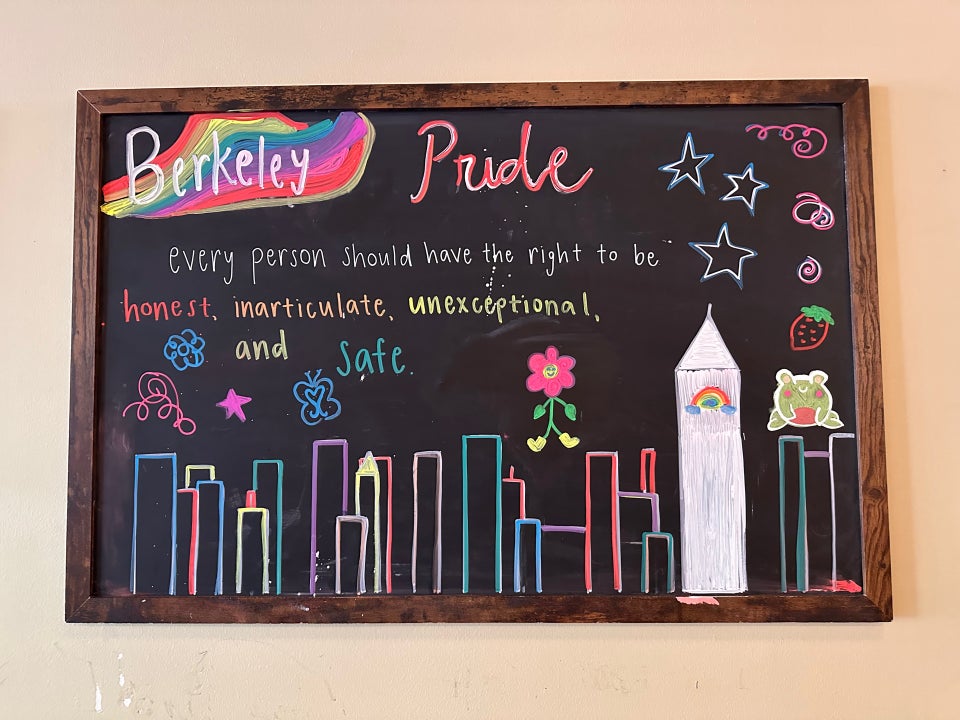 Berkeley Pride
every person should have the right to be
honest, inarticulate, unexceptional,
and safe.